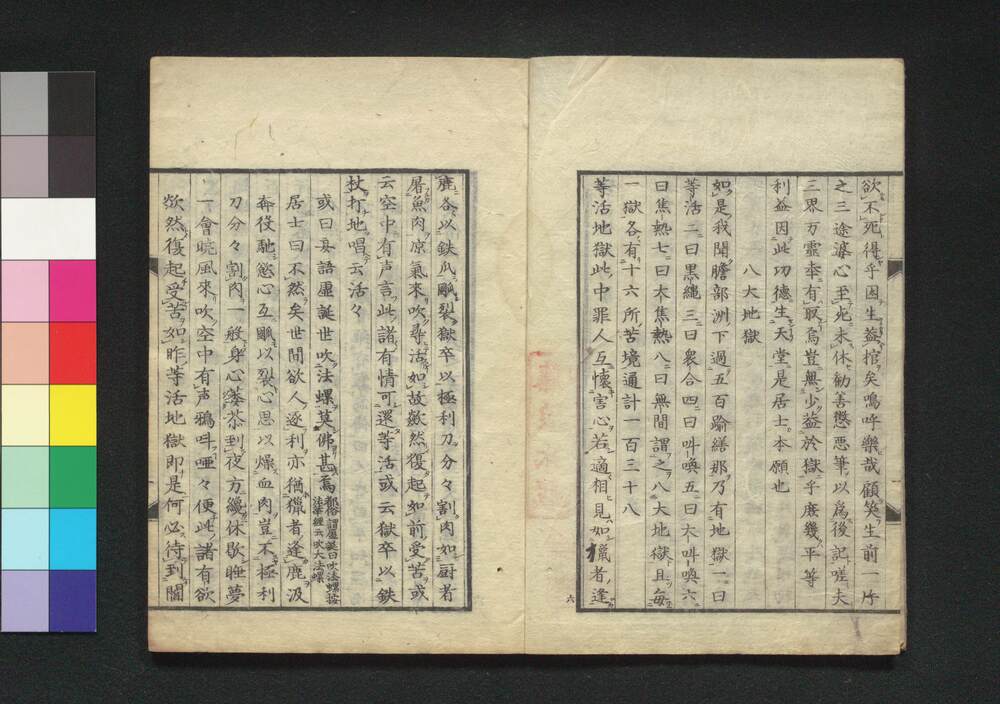 欲不死得乎因生益棺矣嗚呼樂哉顧笑生前一片
之三途婆心至此未休勧善懲悪筆以為後記嗟夫
三界万霊奉有馭烏豈無少益於獄乎庶幾平等
利益因此功德生天堂是居士本願也
八大地獄
如是我聞瞻部洲下過五百踰繕那乃有地獄一曰
等活二曰黒縄三曰衆合四曰叫喚五曰大叫喚六
曰焦熱七曰大焦熱八曰無間謂之八大地獄且毎
一獄各有十六所苦境通計一百三十八
等活地獄此中罪人互懐害心若適相見如猟者逢
六
鹿各以鉄爪㓰裂獄卒以極利刀分々割肉如厨者
屠魚肉凉氣來吹尋活如故歘然復起如前受苦或
云空中有声言此諸有情可還等活或云獄卒以鉄
杖打地唱云活々
或曰妄語虚誕世吹法螺莫佛甚焉都俗謂虚誕曰吹法螺按法華経云吹大法螺
居士曰不然矣世間欲人逐利亦猶獵者逢鹿汲
奔役馳慾心互㓰以裂心思以燥血肉豈不極利
刀分々割肉一般身心蔞苶到夜方纔休歇睡夢
一會暁風來吹空中有声鴉叫唖々便此諸有欲
歘然復起受苦如昨等活地獄即是何必待到閻